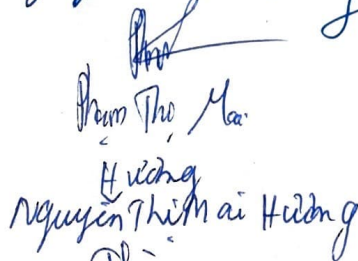 Phạm Thị Mai
Hường
Nguyễn Thị Mai Hường